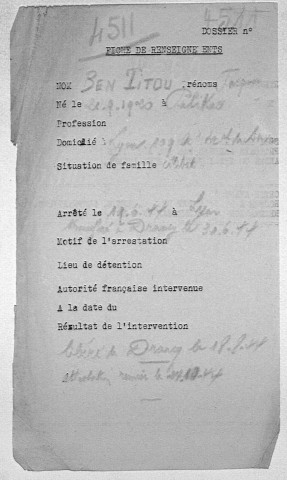 4511
4511
DOSSIER n°
FICHE DE RENSEIGNEMENTS
NOM BEN TITOU prénoms
Né le 2.9.1920 à
Profession
Domicilé : Lyon 139
Situation de famille célib.
Arrêté le 19.6.44 à Lyon
transféré à Drancy le 30.6.44
Motif de l'arrestation
Lieu de détention
Autorité française intervenue
A la date du
Résultat de l'intervention
libéré de Drancy le 18.8.44